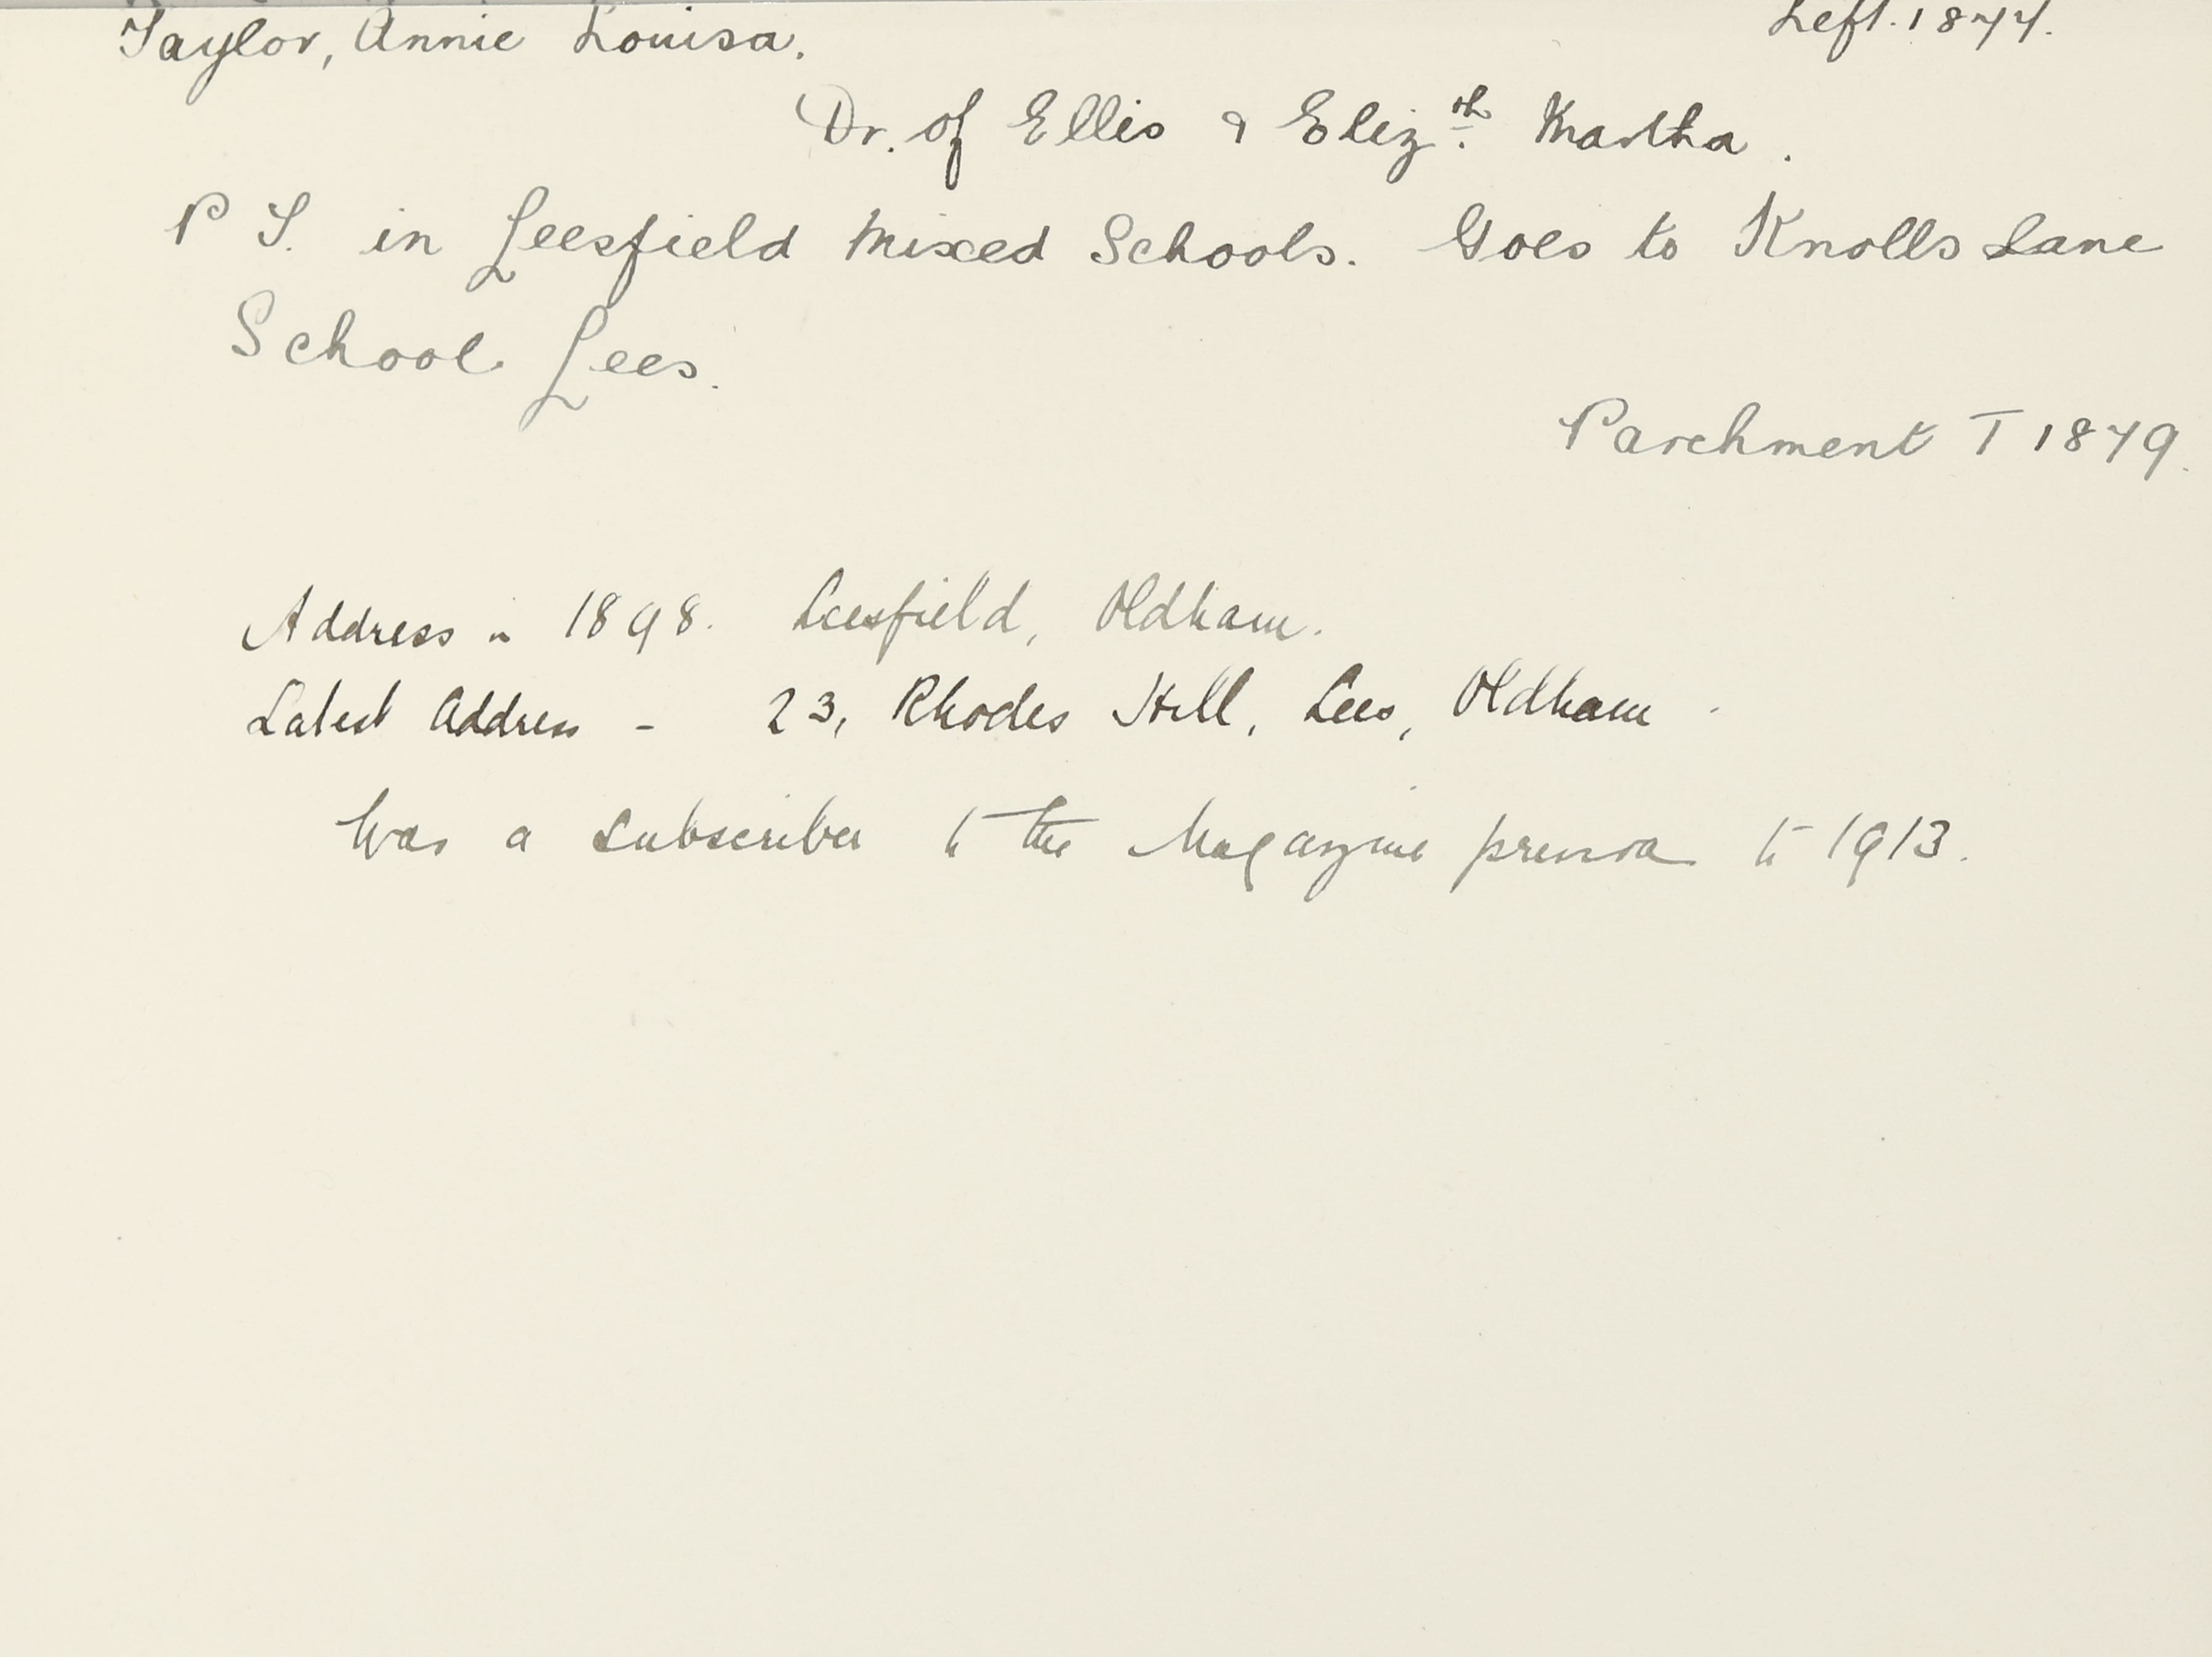 Taylor, Annie Louisa. Left. 1877.
Dr. of Ellis & Elizth. Martha.
P T. in Leesfield Mixed Schools. Goes to Knolls Lane
School Lees.
Parchment T 1879.
Address in 1898. Leesfield, Oldham.
Latest Address - 23, Rhodes Hill, Lees, Oldham.
Was a subscriber to the Magazine previous to 1913.